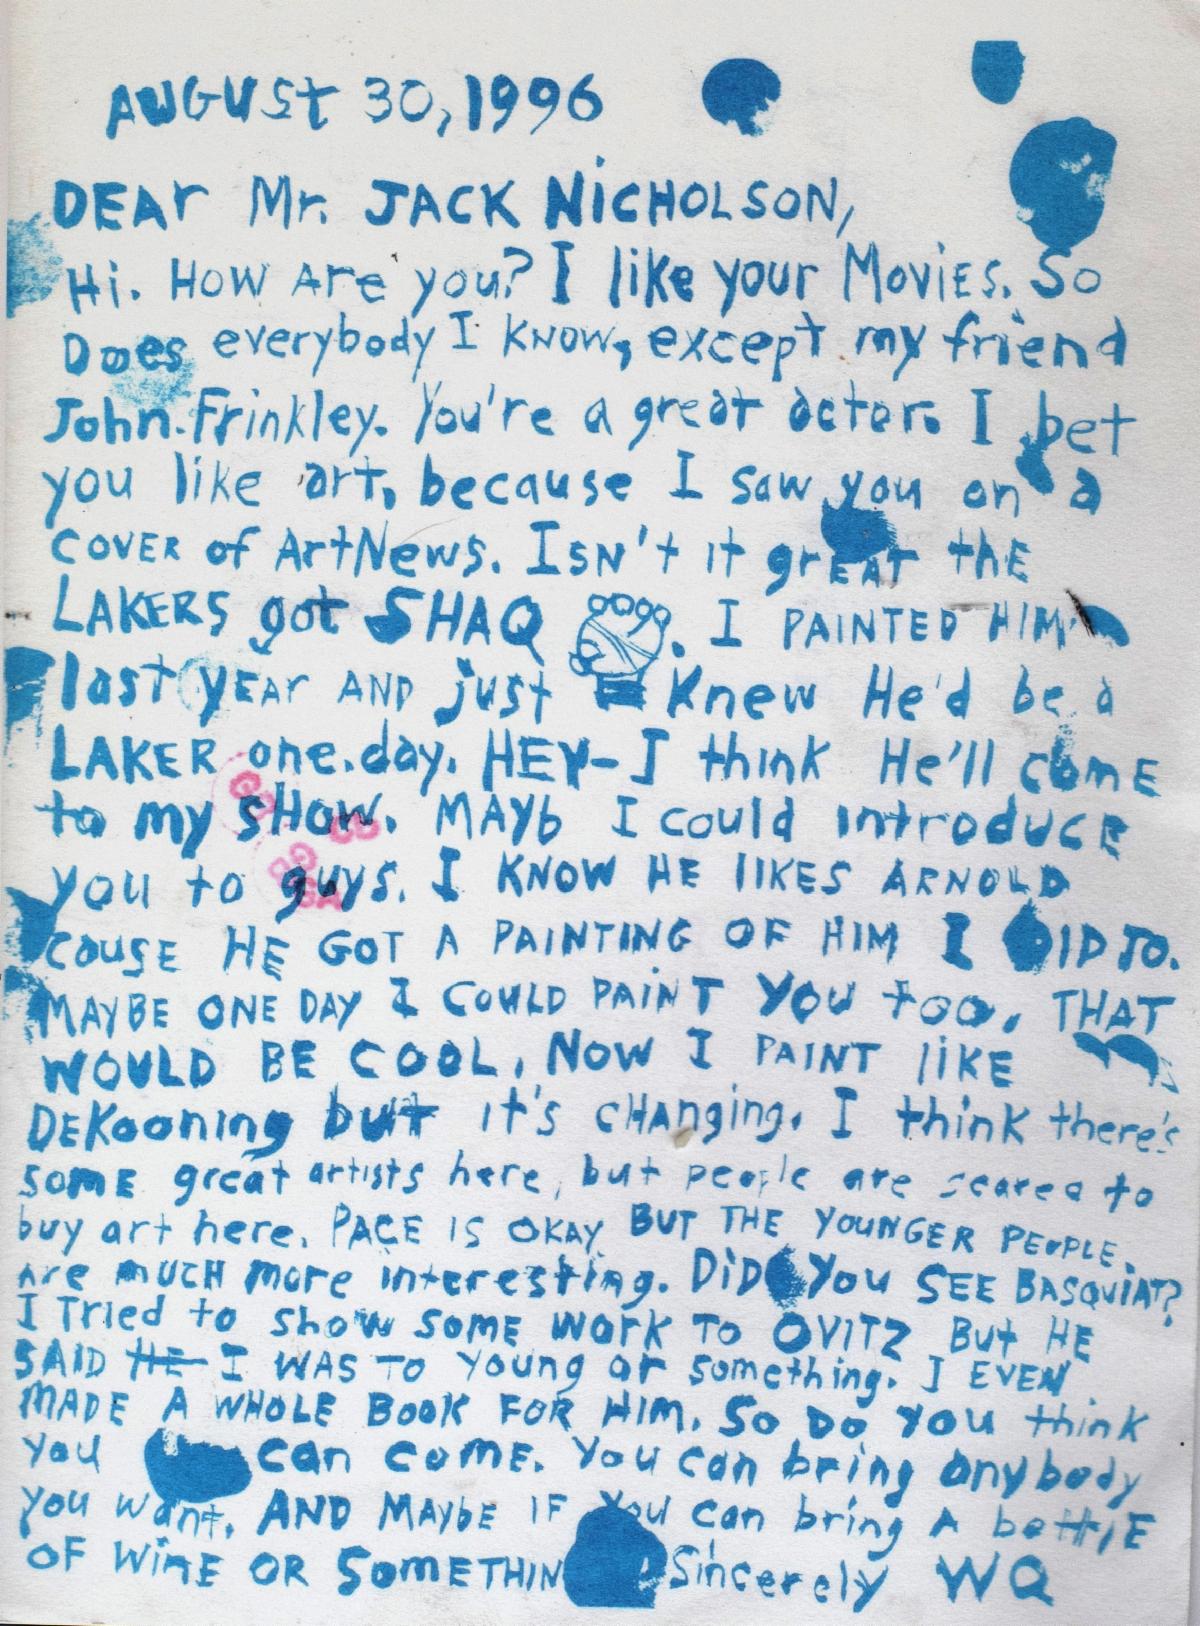 AUGUST 30, 1996
DEAr Mr. JACK NicHOLSON,
Hi. HOW Are you? I like your MoviES. So
Does everybody I KNOW, except my friend
John Frinkley. You're a great actor. I bet
you like art, because I saw you on a
COVER of ArtNews. ISN'T it grEAT thE
LAKERS got SHAQ. I PAINTED HIM
last YEAr AND just Knew He'd be a
LAKER one day. HEY-I think He'll comE
to my sHow. MAYb I could introducE
you to guys. I KNOW HE lIKES ARNOLD
cause HE GOT A PAINTING OF HIM I DID TO.
MAYBE ONE DAY I COULD PAINT YOU too, THAT
WOULD BE COOL. NOW I PAINT lIKE
DEKooning but it's cHAnging. I think there's
somE great artists here, but people are scared to
buy art here. PACE IS OKAY BUT THE YOUNGER PEOPLE
Are mUCH more interesting. DiD You SEE BASQUIAT?
I Tried to show somE work TO OVITZ But HE
SAID HE I WAS TO Young or something. I EVEN
MADE A WHOLE BOOK FOR HIM. So Do You think
you can comE. You can bring anybody
you want. AND MAYBE IF You can bring A bottlE
OF WinE OR SomETHIN Sincerely WQ